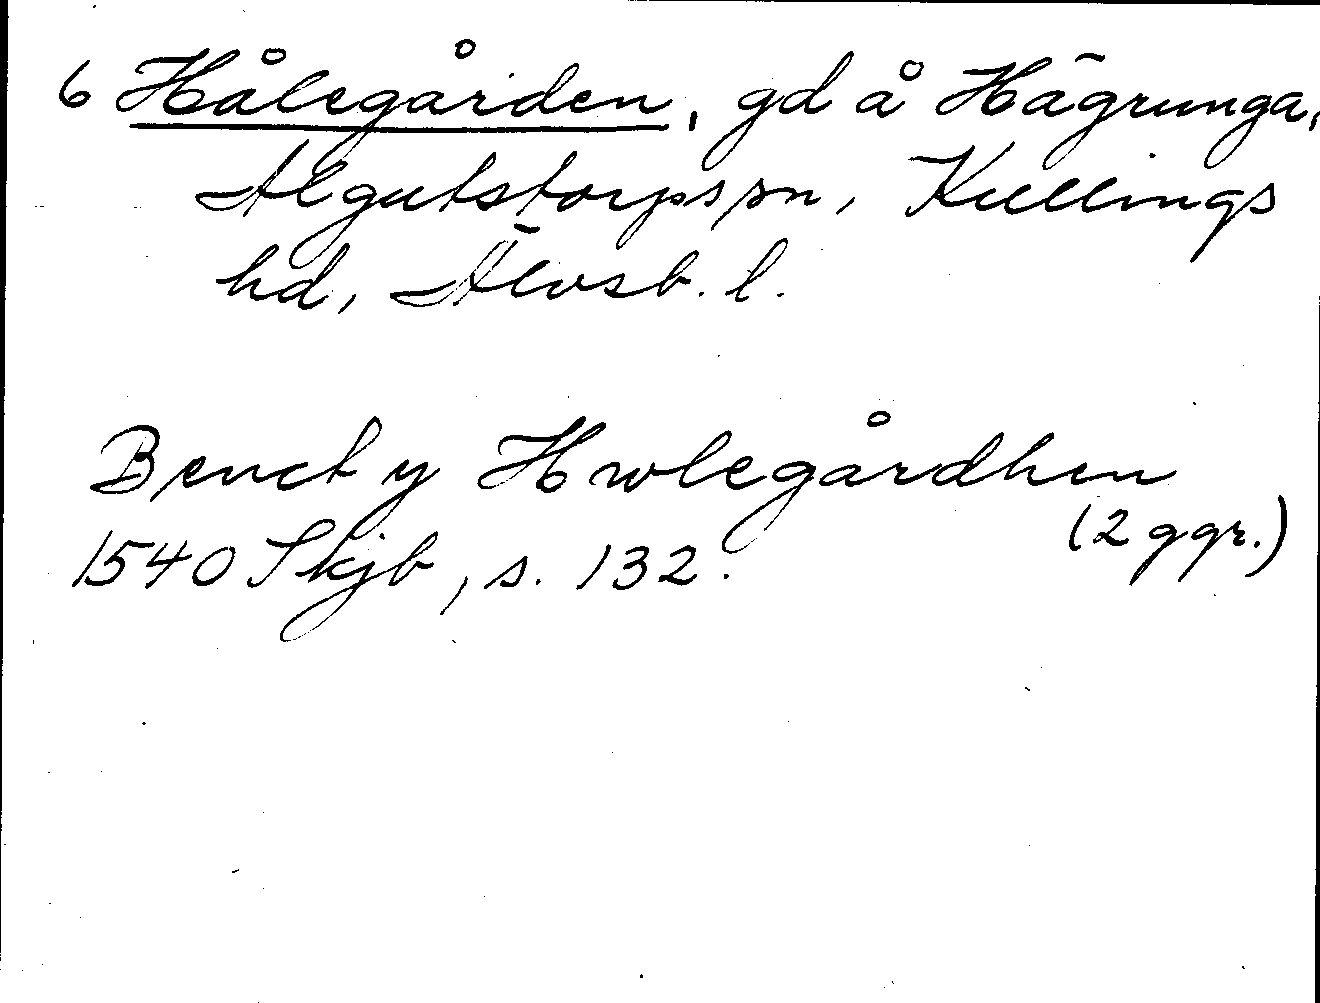 6 Hålegården, gd å Hägrunga,
Algutstorps sn, Kullings
hd, Älvsb. l.
Benct y Hwlegårdhen
(2 ggr.)
1540 Skjb, s. 132.